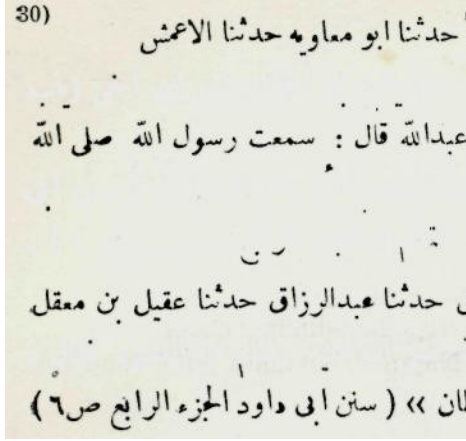 30)
حدثنا ابو معاويه حدثنا الاعمش
عبدالله قال : سمعت رسول الله صلى الله
حدثنا عبدالرزاق حدثنا عقيل بن معقل
» ( سنن ابى داود الجزء الرابع ص٦ )